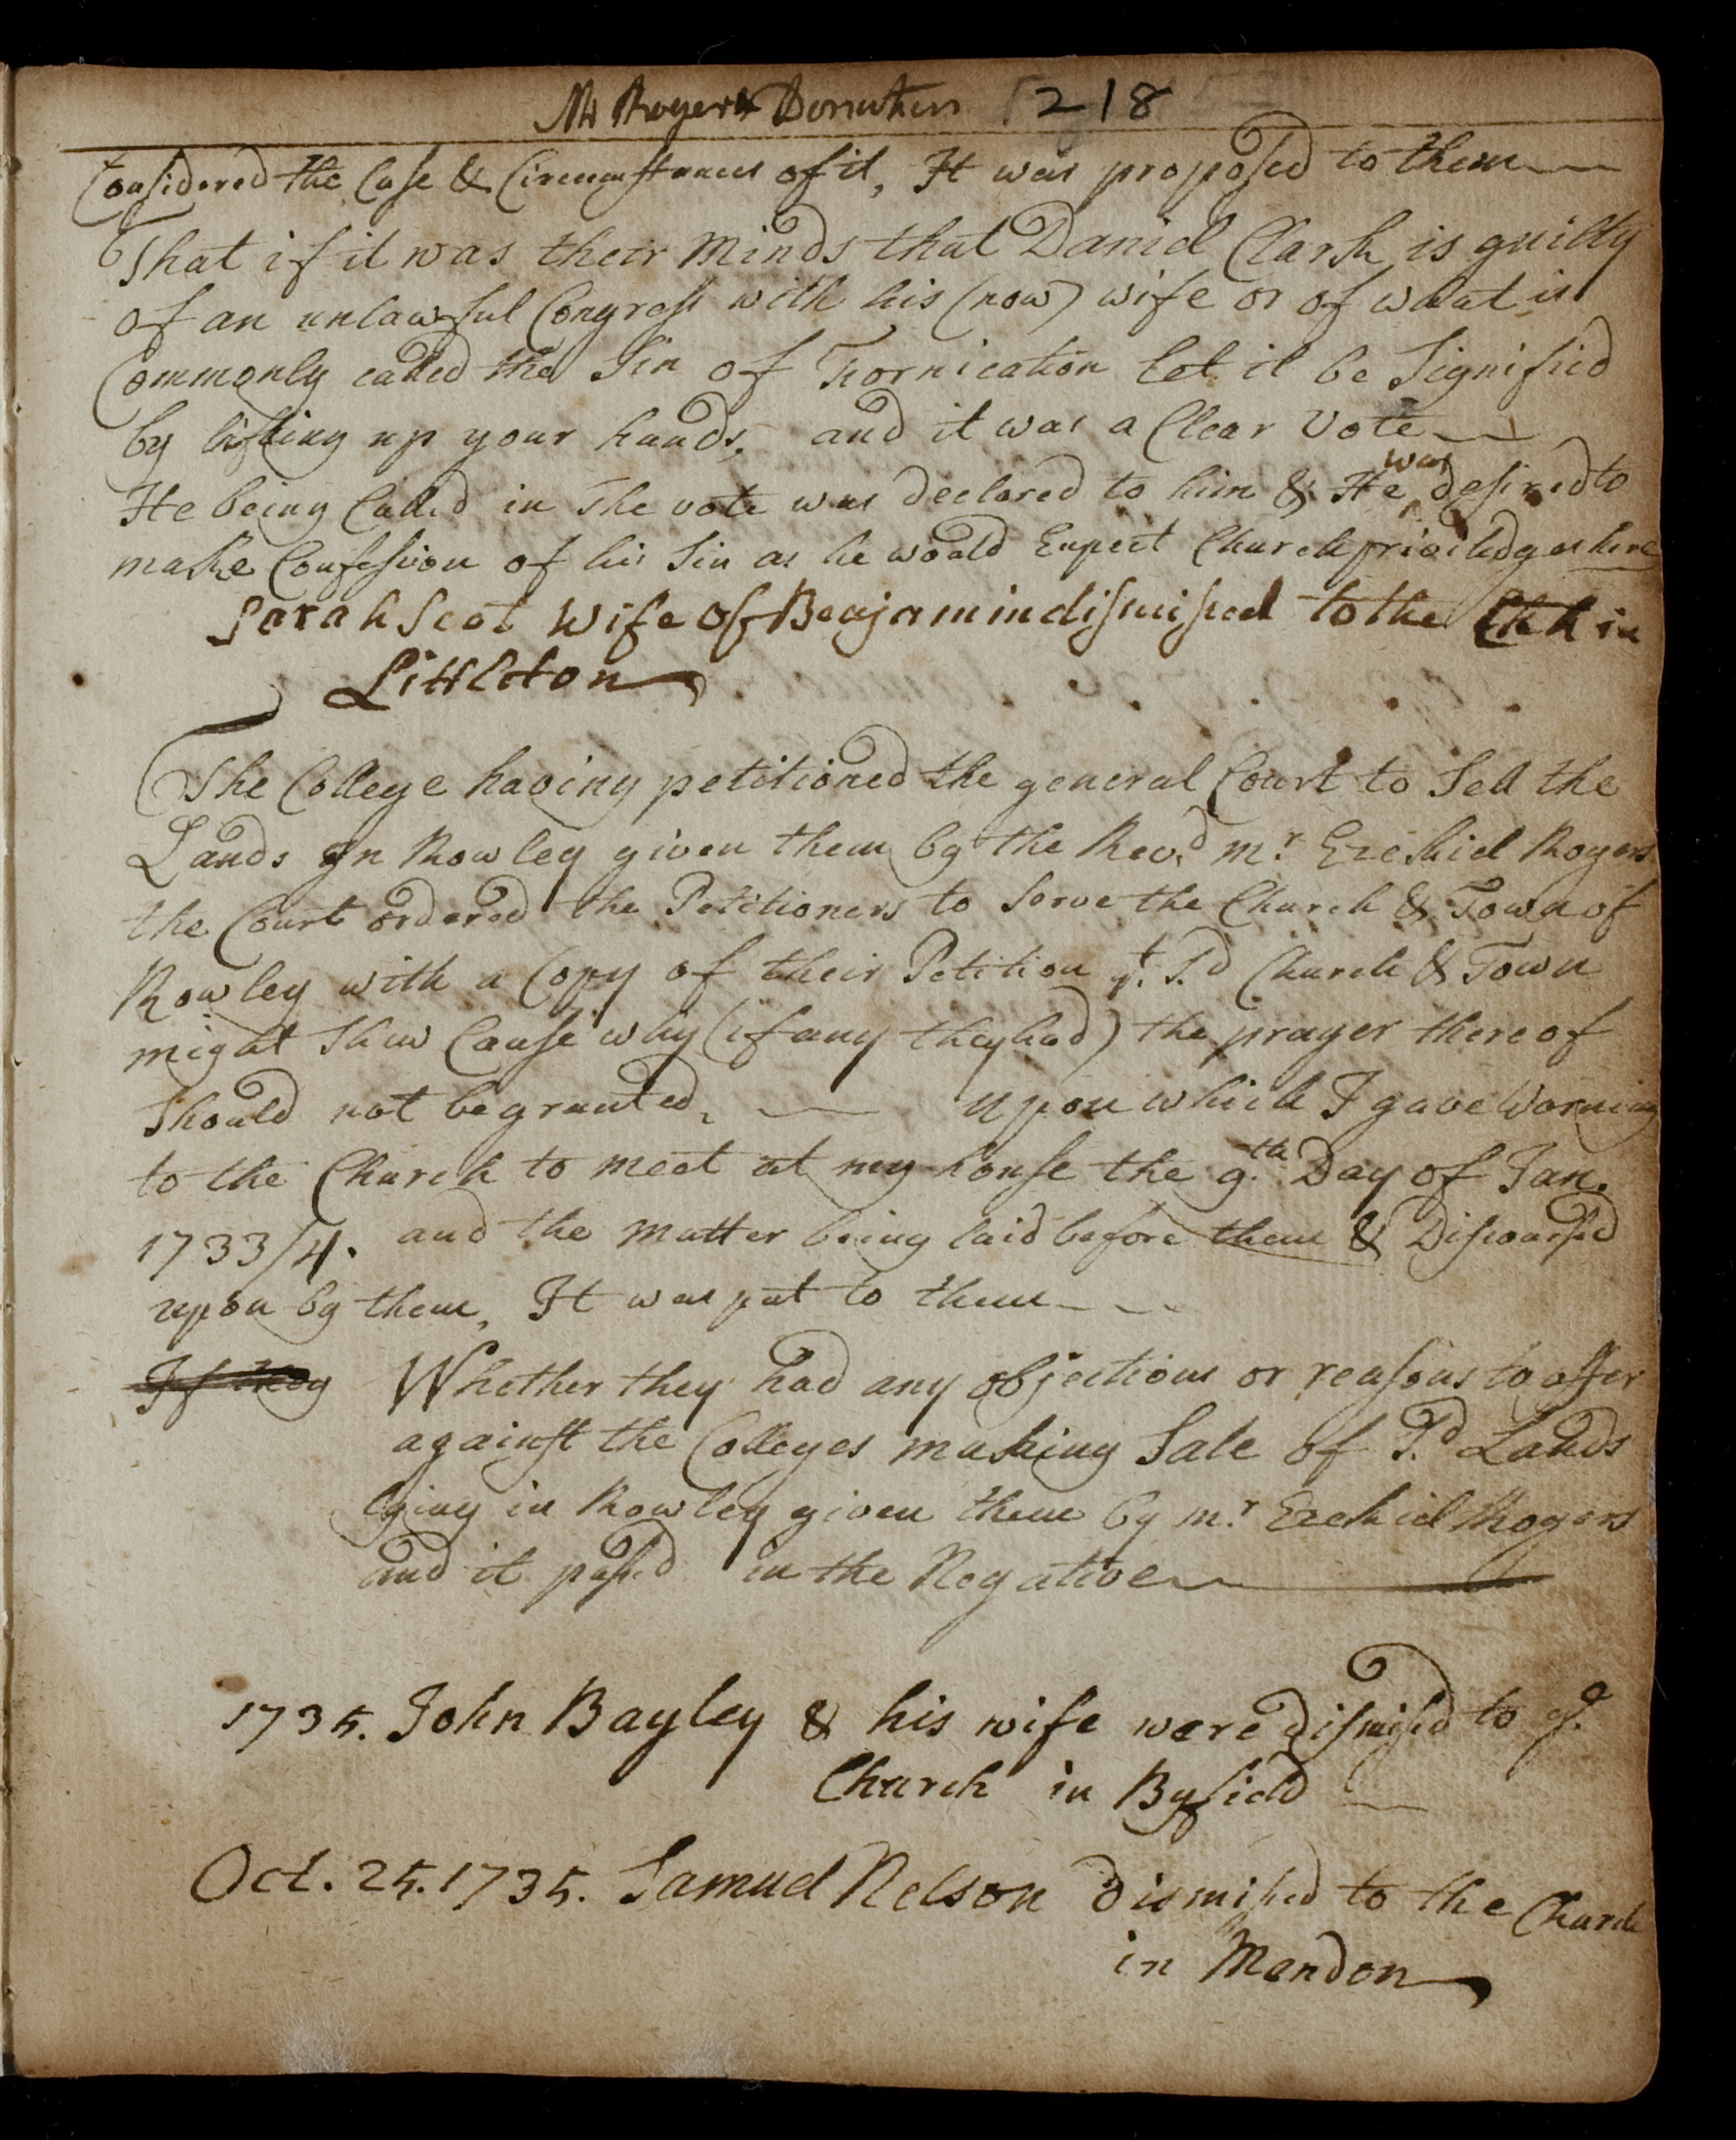 Mr Rogers Donation 218
Considered the Case & Circumstances of it, It was proposed to them
That if it was their minds that Daniel Clark is guilty
of an unlawful Congress with his (now) wife or of what is
Commonly called the Sin of Fornication let it be Signified
by lifting up your hands, and it was a Clear Vote
He being Called in The vote was declared to him & He was desired to
make Confession of his Sin as he would Expect Church priviledges here
Sarah Scot Wife of Benjamin dismissed to the Chh in
Littleton
The College having petitioned the general Court to Sell the
Lands In Rowley given them by the Rev.d m.r Ezekiel Rogers
the Court ordered the Petitioners to Serve the Church & Town of
Rowley with a Copy of their Petition yt. S.d Church & Town
might Shew Cause why (if any they had) the prayer thereof
Should not be granted, upon which I gave Warning
to the Church to meet at my house the 9.th Day of Jan.
1733/4. and the matter being laid before them & Discoursed
upon by them, It was put to them
If they Whether they had any objections or reasons to offer
against the Colleges making Sale of S.d Lands
lying in Rowley given them by m.r Ezekiel Rogers
and it passed in the Negative
1735. John Bayley & his wife were dismissd to ye.
Church in Byfield
Oct. 25. 1735. Samuel Nelson dismissed to the Church
in Mendon